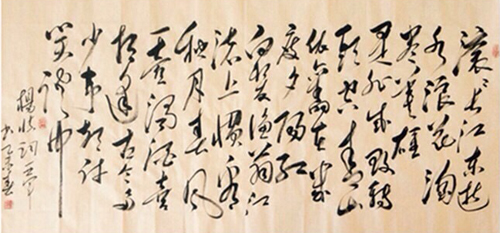 滚滚长江东逝
水浪花淘
尽英雄
是非成败转
头空青山
依旧在几
度夕阳红
白发渔翁江
渚上惯看
秋月春风
一壶浊酒喜
相逢古今多
少事都付
笑谈中
楊慎词